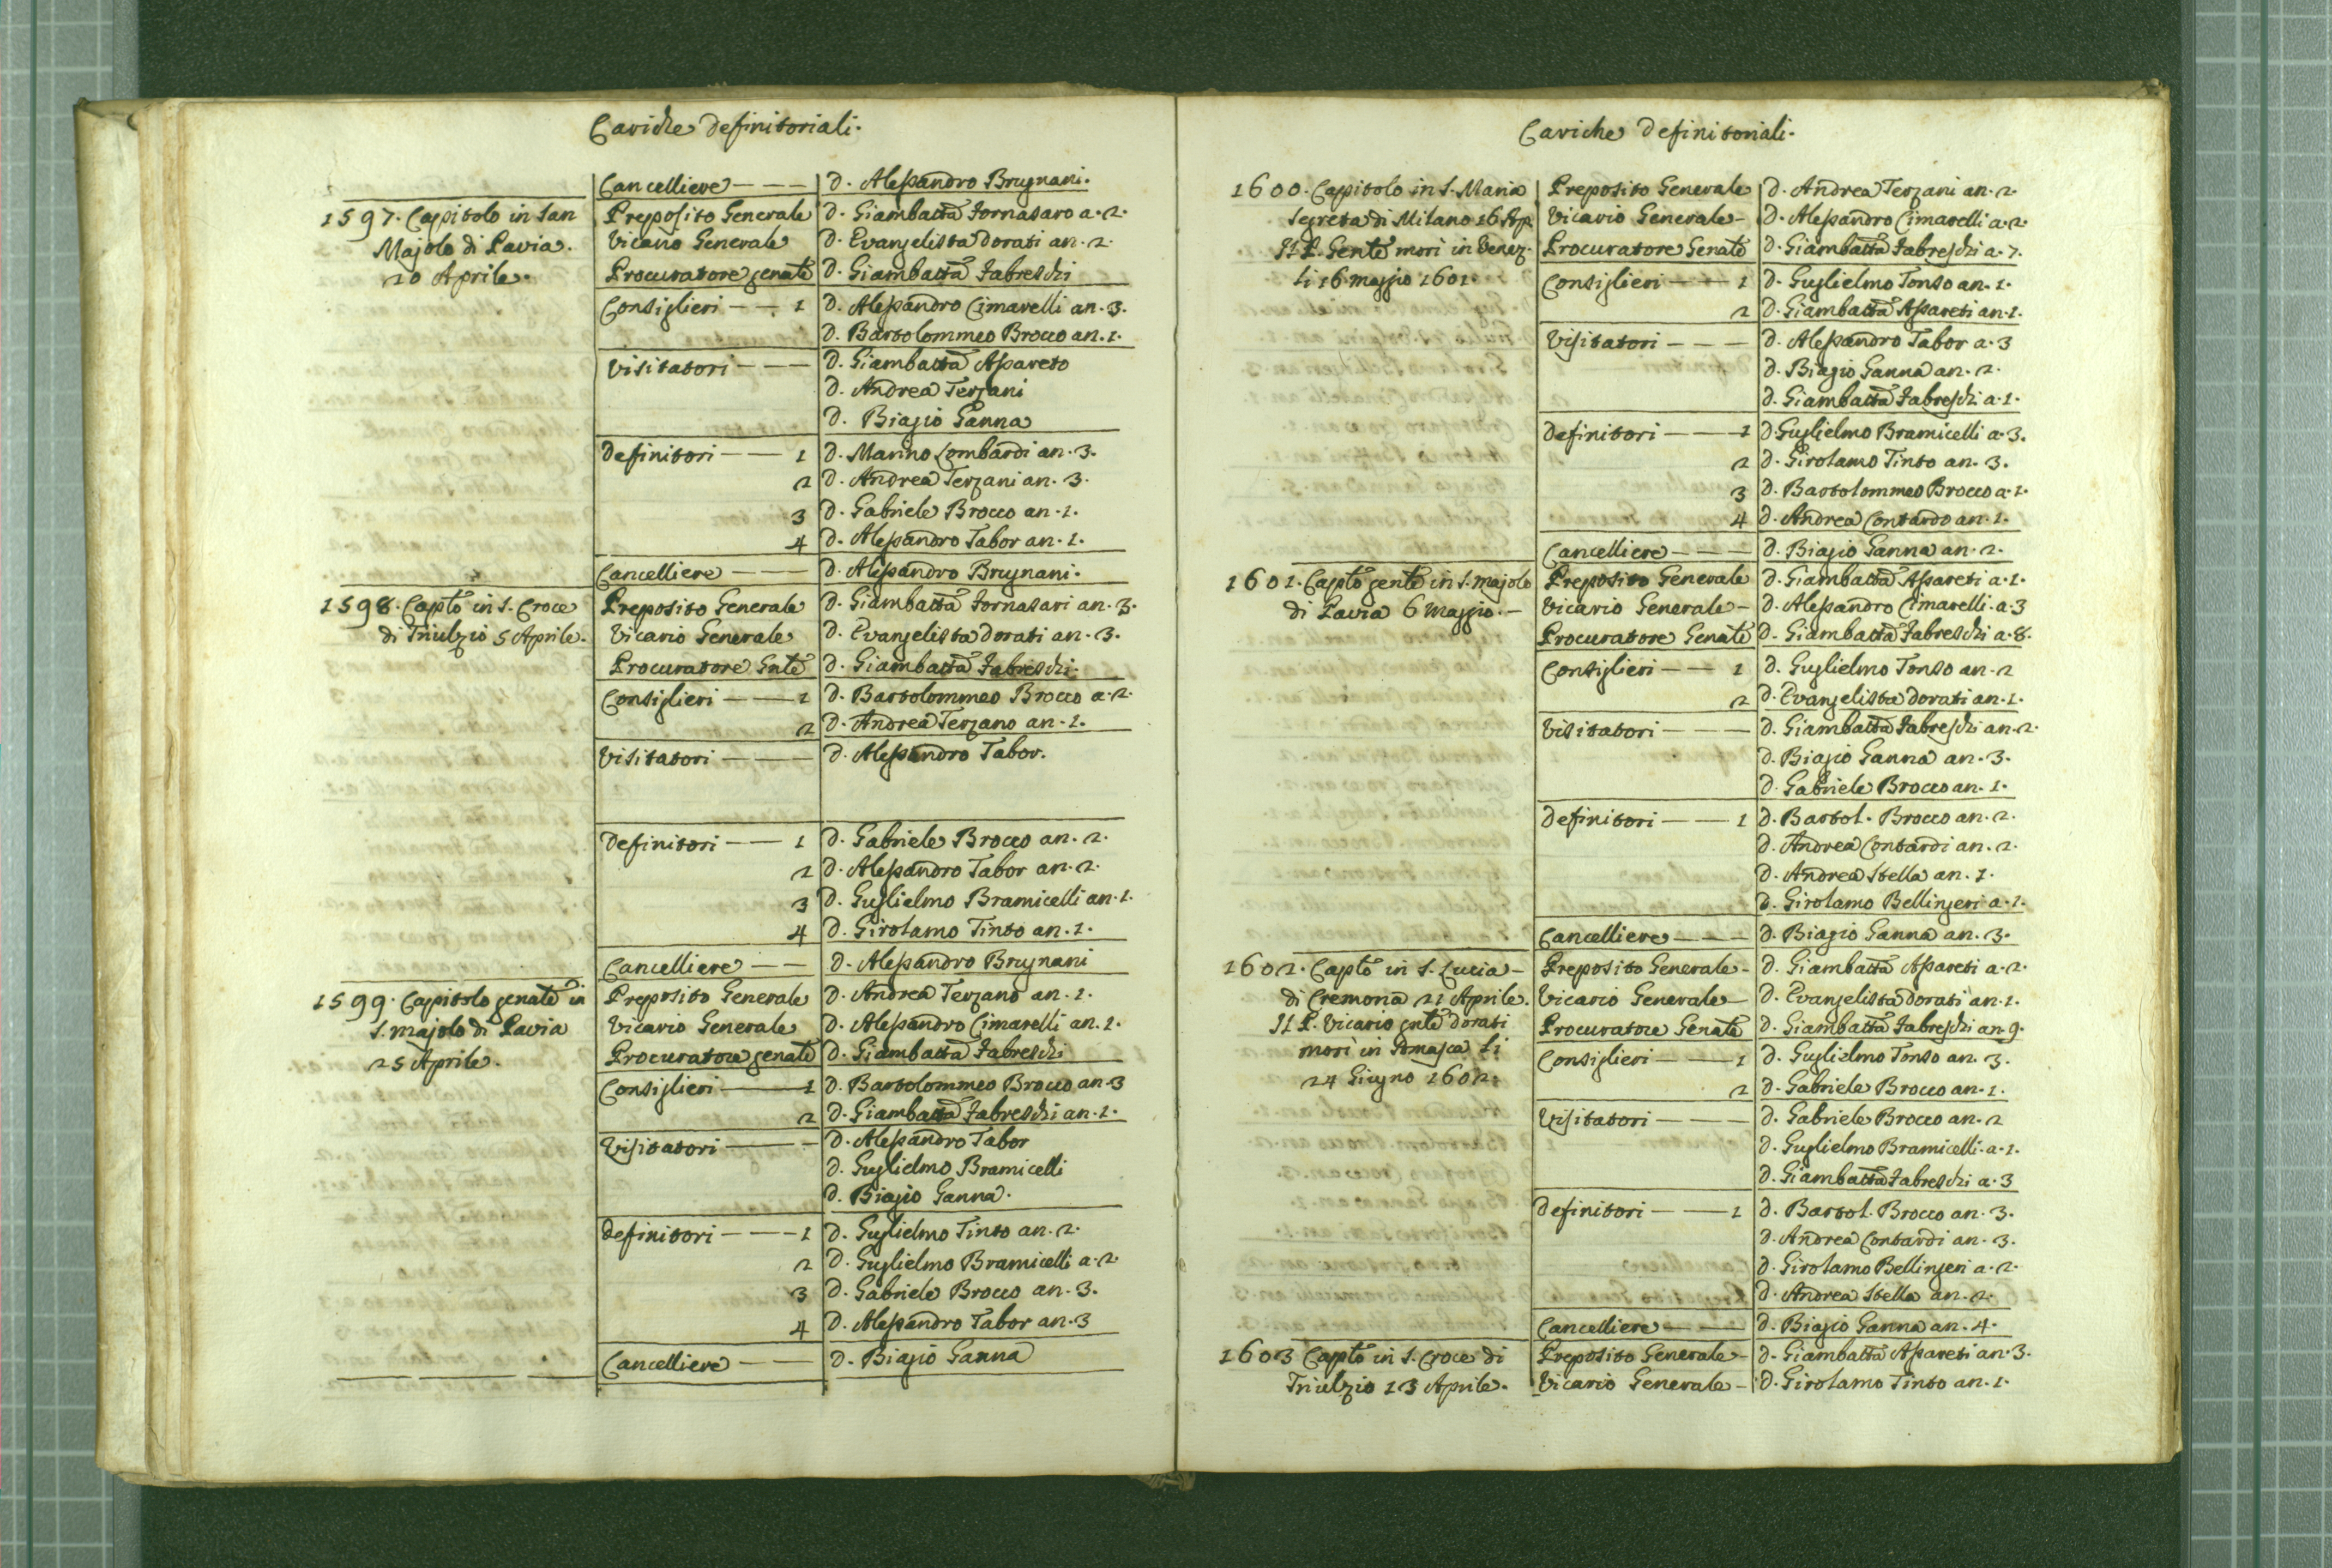 Cariche Definitoriali.
Cancelliere — — — D. Alessandro Brugnani.
1597. Capitolo in San Preposito Generale D. Giambatta Fornasaro a. 2.
Majolo di Pavia. Vicario Generale D. Evangelista Dorati an. 2.
20 Aprile. Procuratore genale D. Giambatta Fabreschi
Consiglieri — — 1 D. Alessandro Cimarelli an. 3.
D. Bartolommeo Brocco an. 1.
Visitatori — — — D. Giambatta Assareto
D. Andrea Terzani
D. Biagio Ganna
Definitori — — 1 D. Marino Lombardi an. 3.
2 D. Andrea Terzani an. 3.
3 D. Gabriele Brocco an. 1.
4 D. Alessandro Tabor an. 1.
Cancelliere — — — D. Alessandro Brugnani.
1598. Capto in S. Croce Preposito Generale D. Giambatta Fornasari an. 3.
di Triulzio 5 Aprile. Vicario Generale D. Evangelista Dorati an. 3.
Procuratore Gnle D. Giambatta Fabreschi.
Consiglieri — — 1 D. Bartolommeo Brocco a. 2.
2 D. Andrea Terzano an. 1.
Visitatori — — — D. Alessandro Tabor.
Definitori — — 1 D. Gabriele Brocco an. 2.
2 D. Alessandro Tabor an. 2.
3 D. Guglielmo Bramicelli an. 1.
4 D. Girolamo Tinto an. 1.
Cancelliere — — D. Alessandro Brugnani
1599. Capitolo genale in Preposito Generale D. Andrea Terzano an. 1.
S. Majolo di Pavia Vicario Generale D. Alessandro Cimarelli an. 1.
25 Aprile. Procuratore genale D. Giambatta Fabreschi
Consiglieri — — 1 D. Bartolommeo Brocco an. 3
2 D. Giambatta Fabreschi an. 1.
Visitatori — — — D. Alessandro Tabor
D. Guglielmo Bramicelli
D. Biagio Ganna.
Definitori — — — 1 D. Guglielmo Tinto an. 2.
2 D. Guglielmo Bramicelli a. 2.
3 D. Gabriele Brocco an. 3.
4 D. Alessandro Tabor an. 3
Cancelliere — — D. Biagio Ganna
Cariche Definitoriali.
1600. Capitolo in S. Maria Preposito Generale D. Andrea Terzani an. 2.
Segreta di Milano 16 Ap. Vicario Generale — D. Alessandro Cimarelli a. 2.
Il P. Genle morì in Venez. Procuratore Genale D. Giambatta Fabreschi a. 7.
li 16 maggio 1601. Consiglieri — — 1 D. Guglielmo Tonso an. 1.
2 D. Giambatta Assareti an. 1.
Visitatori — — — D. Alessandro Tabor a. 3
D. Biagio Ganna an. 2.
D. Giambatta Fabreschi a. 1.
Definitori — — 1 D Guglielmo Bramicelli a. 3.
2 D. Girolamo Tinto an. 3.
3 D. Bartolommeo Brocco a. 1.
4 D. Andrea Contardo an. 1.
Cancelliere — — — D. Biagio Ganna an. 2.
1601. Capto genle in S. Majolo Preposito Generale D. Giambatta Assareti a. 1.
di Pavia 6 Maggio. — Vicario Generale — D. Alessandro Cimarelli. a. 3
Procuratore Genale D. Giambatta Fabreschi a. 8.
Consiglieri — — 1 D. Guglielmo Tonso an. 2
2 D. Evangelista Dorati an. 1.
Visitatori — — — D. Giambatta Fabreschi an. 2.
D. Biagio Ganna an. 3.
D. Gabriele Brocco an. 1.
Definitori — — 1 D. Bartol. Brocco an. 2.
D. Andrea Contardi an. 2.
D. Andrea Stella an. 1.
D. Girolamo Bellingeri a. 1.
Cancelliere — — — D. Biagio Ganna an. 3.
1602. Capto in S. Lucia — Preposito Generale — D. Giambatta Assareti a. 2.
di Cremona 21 Aprile. Vicario Generale — D. Evangelista Dorati an. 1.
Il P. Vicario gnle Dorati Procuratore Genale D. Giambatta Fabreschi an. 9.
morì in Somasca li Consiglieri — — 1 D. Guglielmo Tonso an. 3.
24 Giugno 1602. 2 D. Gabriele Brocco an. 1.
Visitatori — — — D. Gabriele Brocco an. 2
D. Guglielmo Bramicelli. a. 1.
D. Giambatta Fabreschi a. 3
Definitori — — 1 D. Bartol. Brocco an. 3.
D. Andrea Contardi an. 3.
D. Girolamo Bellingeri a. 2.
D. Andrea Stella an. 2.
Cancelliere — — D. Biagio Ganna an. 4.
1603 Capto in S. Croce di Preposito Generale — D. Giambatta Assareti an. 3.
Triulzio 13 Aprile. Vicario Generale — D. Girolamo Tinto an. 1.